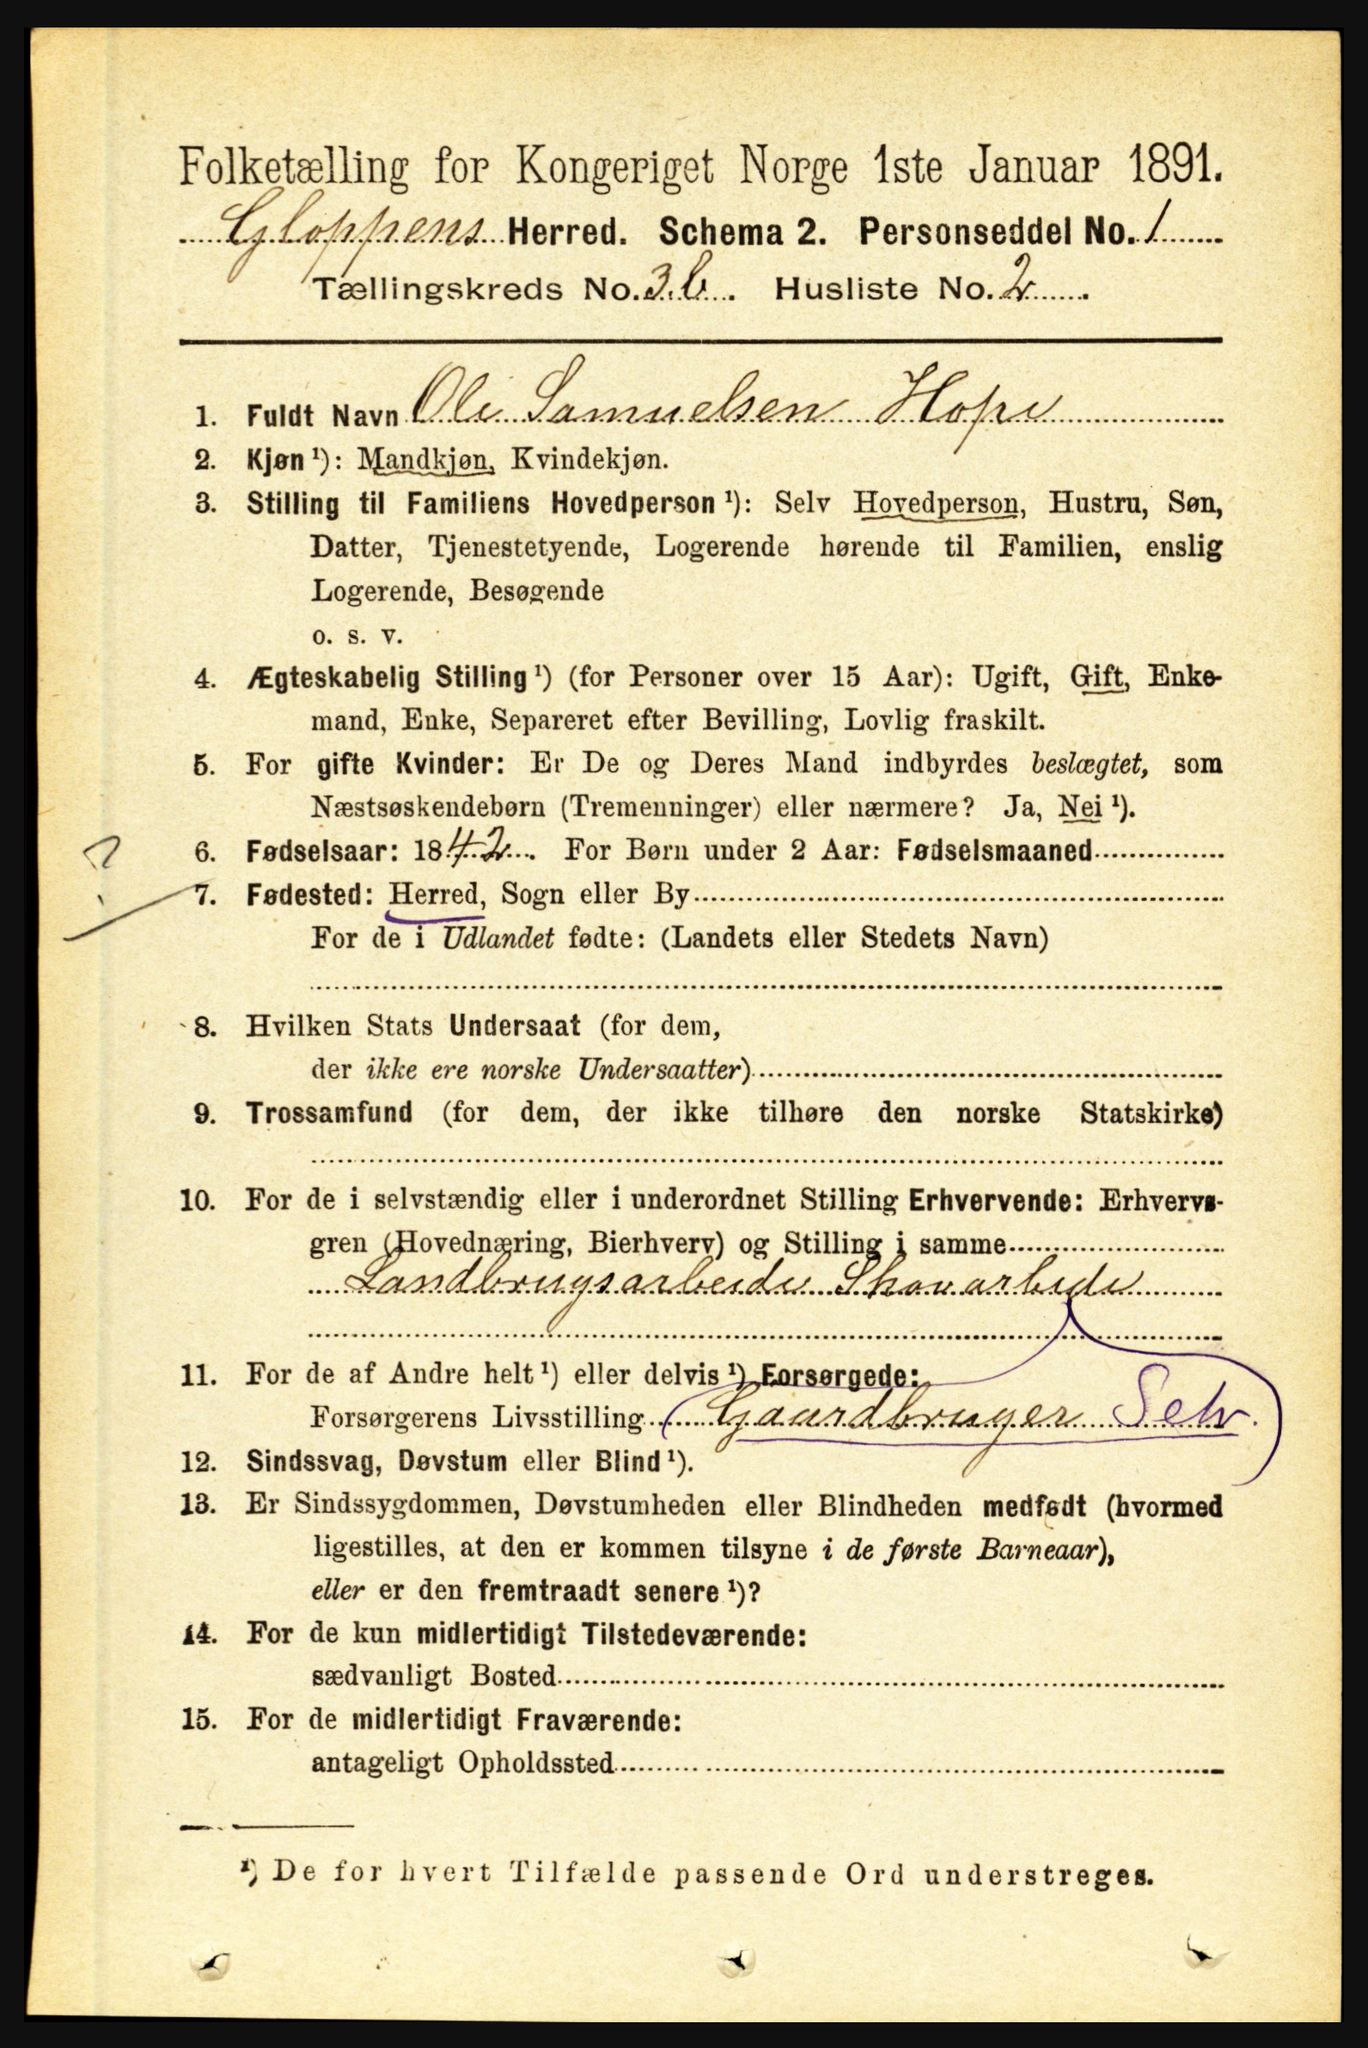 Folketælling for Kongeriget Norge 1ste Januar 1891.
Gloppens Herred. Schema 2. Personseddel No. 1
Tællingskreds No. 3b. Husliste No. 2
1. Fuldt Navn Ole Samuelsen Hope
2. Kjøn ¹): Mandkjøn, Kvindekjøn.
3. Stilling til Familiens Hovedperson ¹): Selv Hovedperson, Hustru, Søn,
Datter, Tjenestetyende, Logerende hørende til Familien, enslig
Logerende, Besøgende
o. s. v.
4. Ægteskabelig Stilling ¹) (for Personer over 15 Aar): Ugift, Gift, Enke-
mand, Enke, Separeret efter Bevilling, Lovlig fraskilt.
5. For gifte Kvinder: Er De og Deres Mand indbyrdes beslægtet, som
Næstsøskendebørn (Tremenninger) eller nærmere? Ja, Nei ¹).
?
6. Fødselsaar: 1842. For Børn under 2 Aar: Fødselsmaaned
7. Fødested: Herred, Sogn eller By
For de i Udlandet fødte: (Landets eller Stedets Navn)
8. Hvilken Stats Undersaat (for dem,
der ikke ere norske Undersaatter)
9. Trossamfund (for dem, der ikke tilhøre den norske Statskirke)
10. For de i selvstændig eller i underordnet Stilling Erhvervende: Erhvervs-
gren (Hovednæring, Bierhverv) og Stilling i samme
Landbrugsarbeide Skovarbeide
11. For de af Andre helt ¹) eller delvis ¹) Forsørgede:
Forsørgerens Livsstilling Gaardbruger Selv.
12. Sindssvag, Døvstum eller Blind ¹).
13. Er Sindssygdommen, Døvstumheden eller Blindheden medfødt (hvormed
ligestilles, at den er kommen tilsyne i de første Barneaar),
eller er den fremtraadt senere ¹)?
14. For de kun midlertidigt Tilstedeværende:
sædvanligt Bosted
15. For de midlertidigt Fraværende:
antageligt Opholdssted
¹) De for hvert Tilfælde passende Ord understreges.